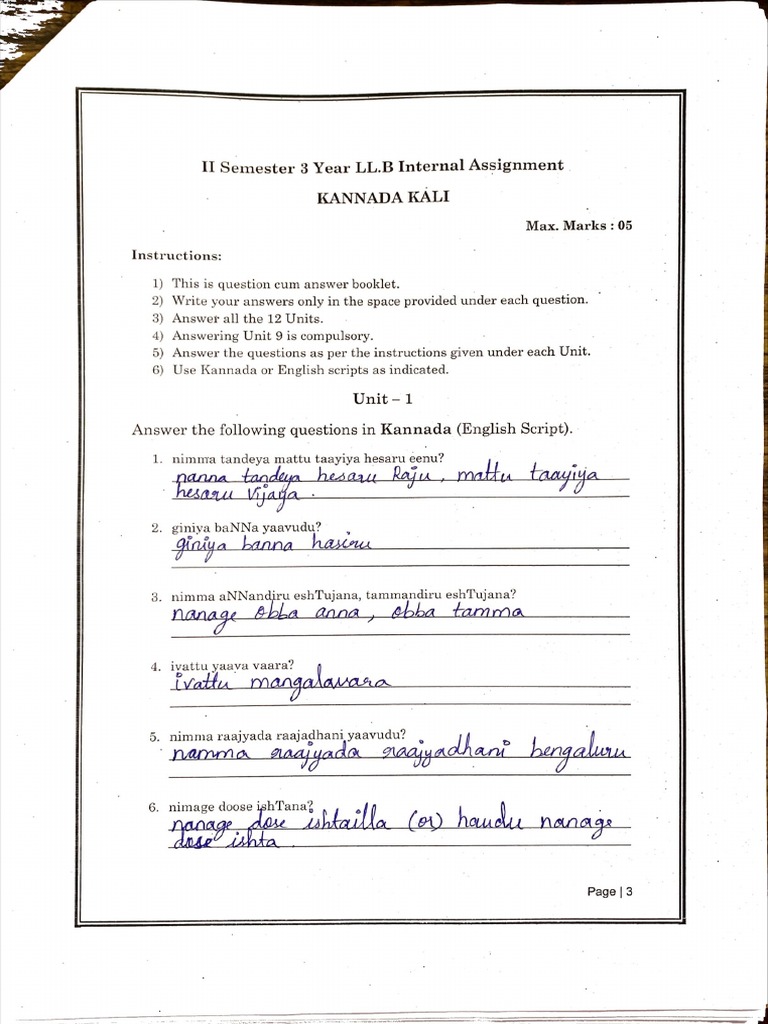 II Semester 3 Year LL.B Internal Assignment
KANNADA KALI
Max. Marks : 05
Instructions:
1) This is question cum answer booklet.
2) Write your answers only in the space provided under each question.
3) Answer all the 12 Units.
4) Answering Unit 9 is compulsory.
5) Answer the questions as per the instructions given under each Unit.
6) Use Kannada or English scripts as indicated.
Unit – 1
Answer the following questions in Kannada (English Script).
1. nimma tandeya mattu taayiya hesaru eenu?
nanna tandeya hesaru Raju, mattu taayiya
hesaru Vijaya .
2. giniya baNNa yaavudu?
giniya banna hasiru
3. nimma aNNandiru eshTujana, tammandiru eshTujana?
nanage obba anna, obba tamma
4. ivattu yaava vaara?
ivattu mangalavara
5. nimma raajyada raajadhani yaavudu?
namma raajyada raajyadhani bengaluru
6. nimage doose ishTana?
nanage dose ishtailla (or) haudu nanage
dose ishta .
Page | 3